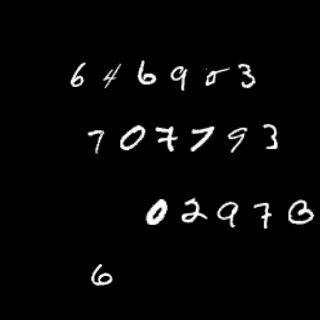 6 4 6 9 5 3
7 0 7 7 9 3
0 2 9 7 3
6